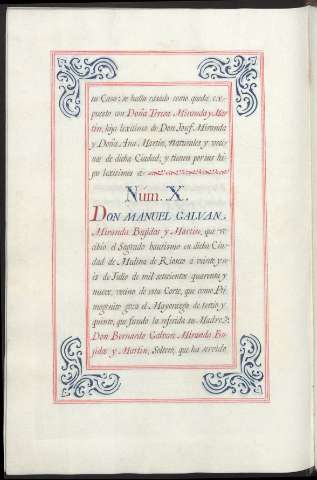 su Casa: se halla casado como queda ex-
puesto con Doña Teresa Miranda y Mar-
tin, hija lexitima de Don Josef Miranda
y Doña Ana Martin, naturales y veci-
nos de dicha Ciudad, y tienen por sus hi-
jos lexitimos á
Núm. X.
DON MANUEL GALVAN
Miranda Bujidos y Martin, que re-
cibió el Sagrado bautismo en dicha Ciu-
dad de Medina de Rioseco á veinte y se-
is de Julio de mil setecientos quarenta y
nueve, vecino de esta Corte, que como Pri-
mogenito goza el Mayorazgo de tercio y
quinto, que fundó la referida su Madre: y
Don Bernardo Galvan Miranda Bu-
jidos y Martin, Soltero, que ha servido